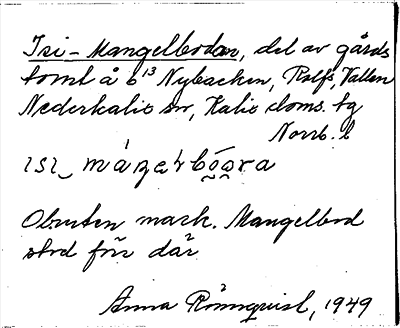 Isi-Mangelbodan, del av gårds
tomt å 6¹³ Nybacken, Rolfs, Vallen
Nederkalix sn, Kalix doms. tg
Norrb. l
Obruten mark. Mangelbod
stod för där
Anna Rönnquist, 1949